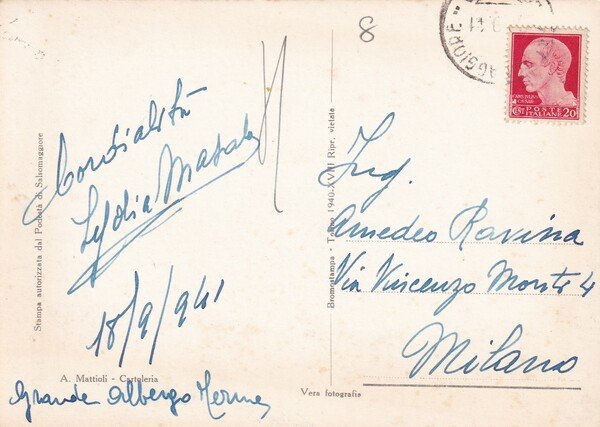 8
AGGIORE
POSTE
ITALIANE
CENT 20
Cordialità
Lydia
18/9/941
Grande Albergo Terme
Ing.
Amedeo Ravina
Via Vincenzo Monti 4
Milano
Stampa autorizzata dal Podestà di Salsomaggiore
A. Mattioli - Cartoleria
Bromostampa - Torino 1940-XVIII Ripr. vietata
Vera fotografia